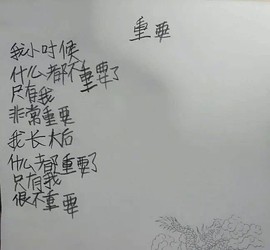 重要
我小时候
什么都不重要了
只有我
非常重要
我长大后
什么都重要了
只有我
很不重要